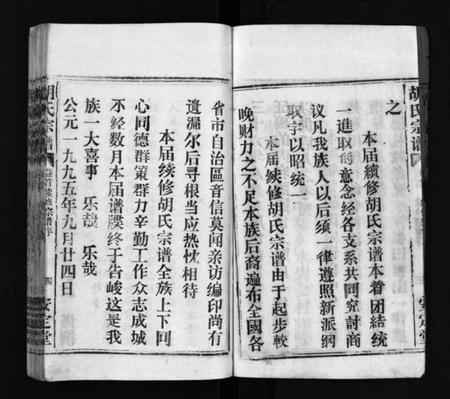 胡氏宗谱
之
本届续修胡氏宗谱本着团结统
一进取创意念经各支系共同究討商
议凡我族人以后须一律遵照新派纲
取字以昭统一
本届续修胡氏宗谱由于起步較
晚财力之不足本族后裔遍布全國各
省市自治區音信莫闻亲访编印尚有
遗漏尔后寻根当应热忱相待
本届续修胡氏宗谱全族上下同
心同德群策群力辛勤工作众志成城
不经数月本届谱牒终于告峻这是我
族一大喜事 乐哉 乐哉
公元一九九五年九月廿四日
胡氏宗谱
四
安定堂